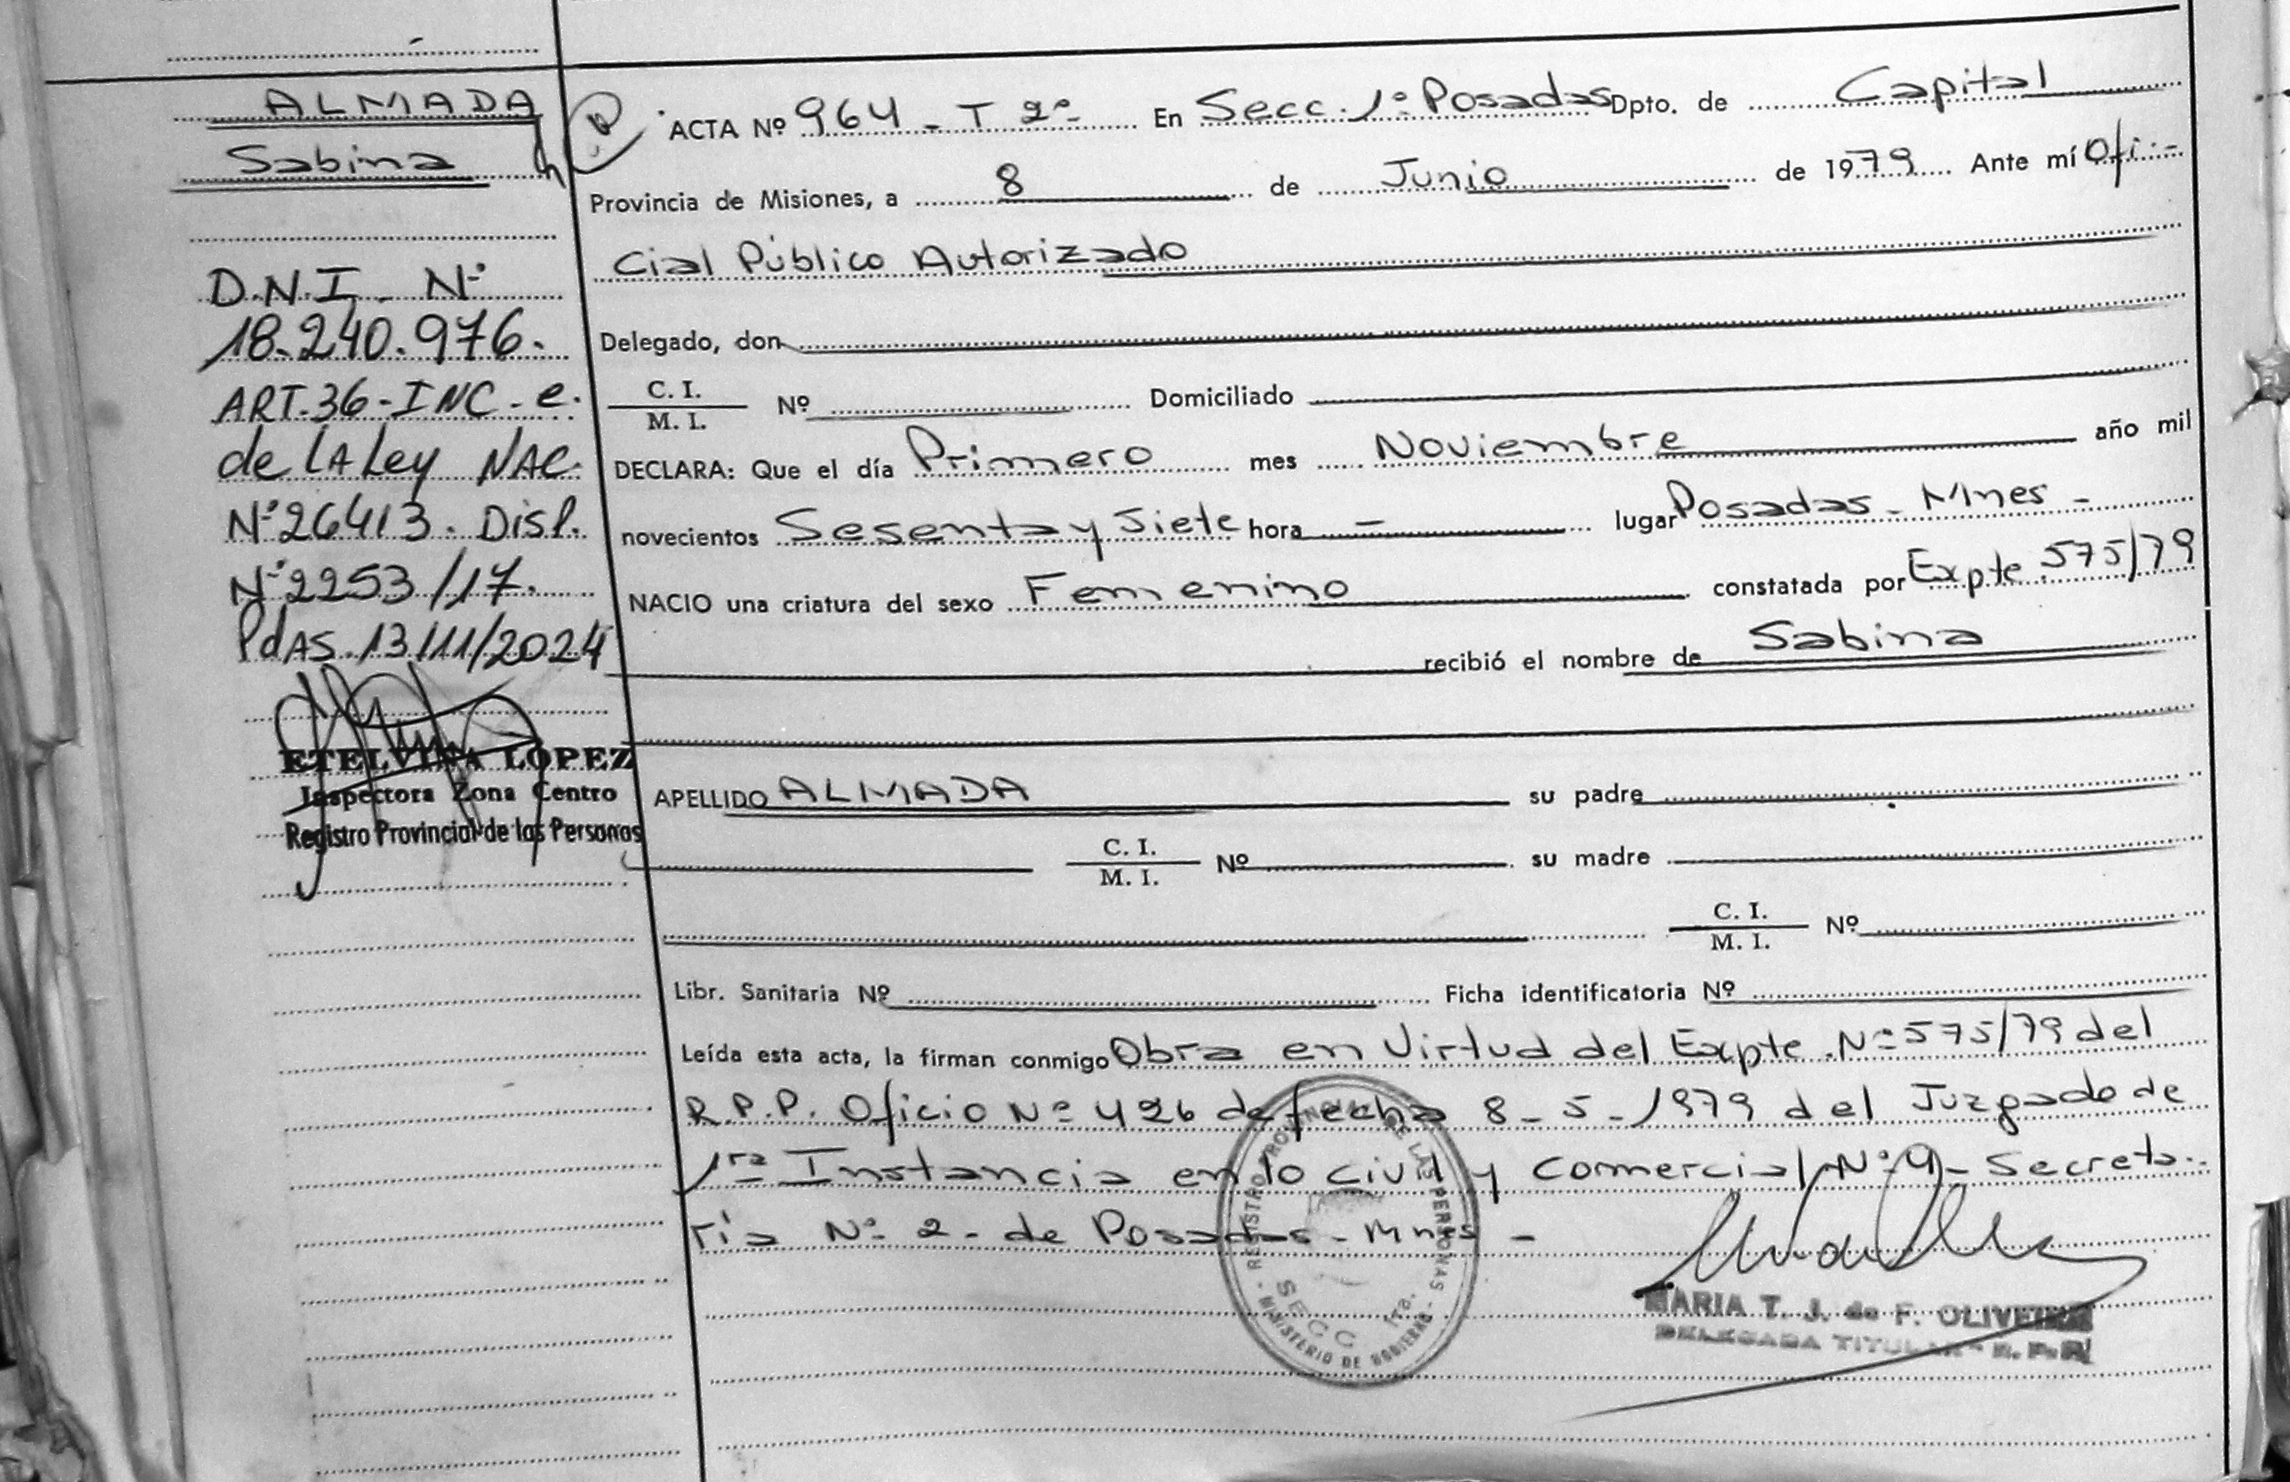 ALMADA
Sabina
D.N.I. Nº
18.240.976.
ART.36-INC-e.
de LA Ley NAC.
Nº26413. Disp.
Nº2253/17.
PdAS.13/11/2024
ETELVINA LOPEZ
Inspectora Zona Centro
Registro Provincial de las Personas
ACTA Nº 964 - T 2º En Secc. 1º Posadas Dpto. de Capital
Provincia de Misiones, a 8 de Junio de 1979 Ante mí Ofi-
cial Público Autorizado
Delegado, don
C. I.
M. I. Nº Domiciliado
DECLARA: Que el día Primero mes Noviembre año mil
novecientos Sesenta y Siete hora - lugar Posadas - Mnes -
NACIO una criatura del sexo Femenino constatada por Expte. 575/79
recibió el nombre de Sabina
APELLIDO ALMADA su padre
C. I.
M. I. Nº su madre
C. I.
M. I. Nº
Libr. Sanitaria Nº Ficha identificatoria Nº
Leída esta acta, la firman conmigo Obra en Virtud del Expte. Nº 575/79 del
R.P.P. Oficio Nº 426 de fecha 8-5-1979 del Juzgado de
1ra Instancia en lo Civil y Comercial Nº 4 - Secreta-
ría Nº 2 - de Posadas - Mnes -
REGISTRO PROVINCIAL DE LAS PERSONAS
SECC 1ra.
MINISTERIO DE GOBIERNO
MARIA T. J. de F. OLIVEIRA
DELEGADA TITULAR - R. P. P.